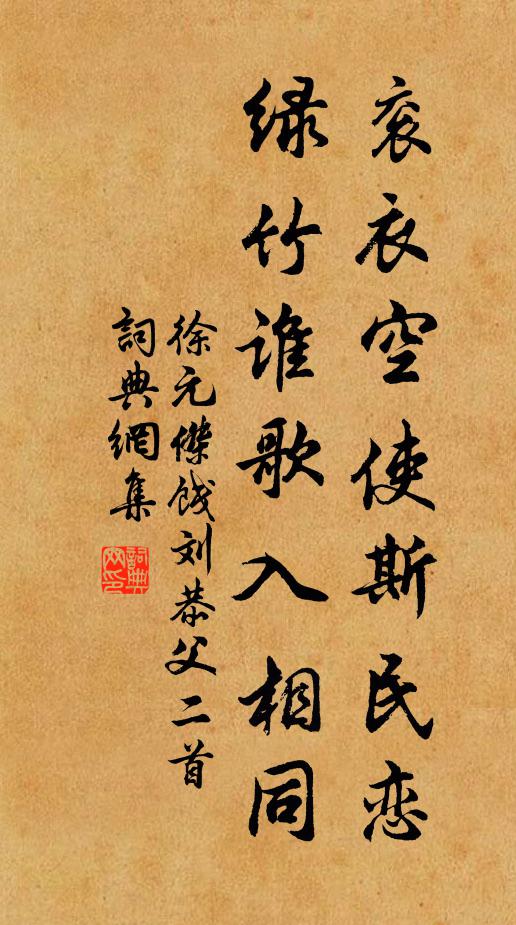 衮衣空使斯民恋
绿竹谁歌入相同
徐元傑饯刘恭父二首
詞典網集
詞典網印